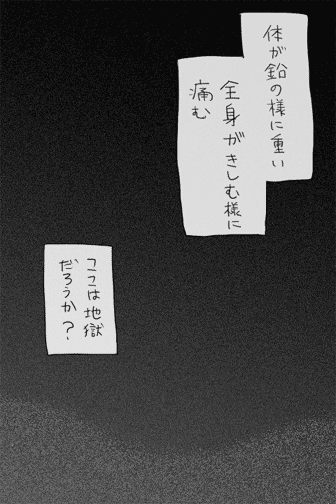 体が鉛の様に重い
全身がきしむ様に
痛む
ここは地獄
だろうか？